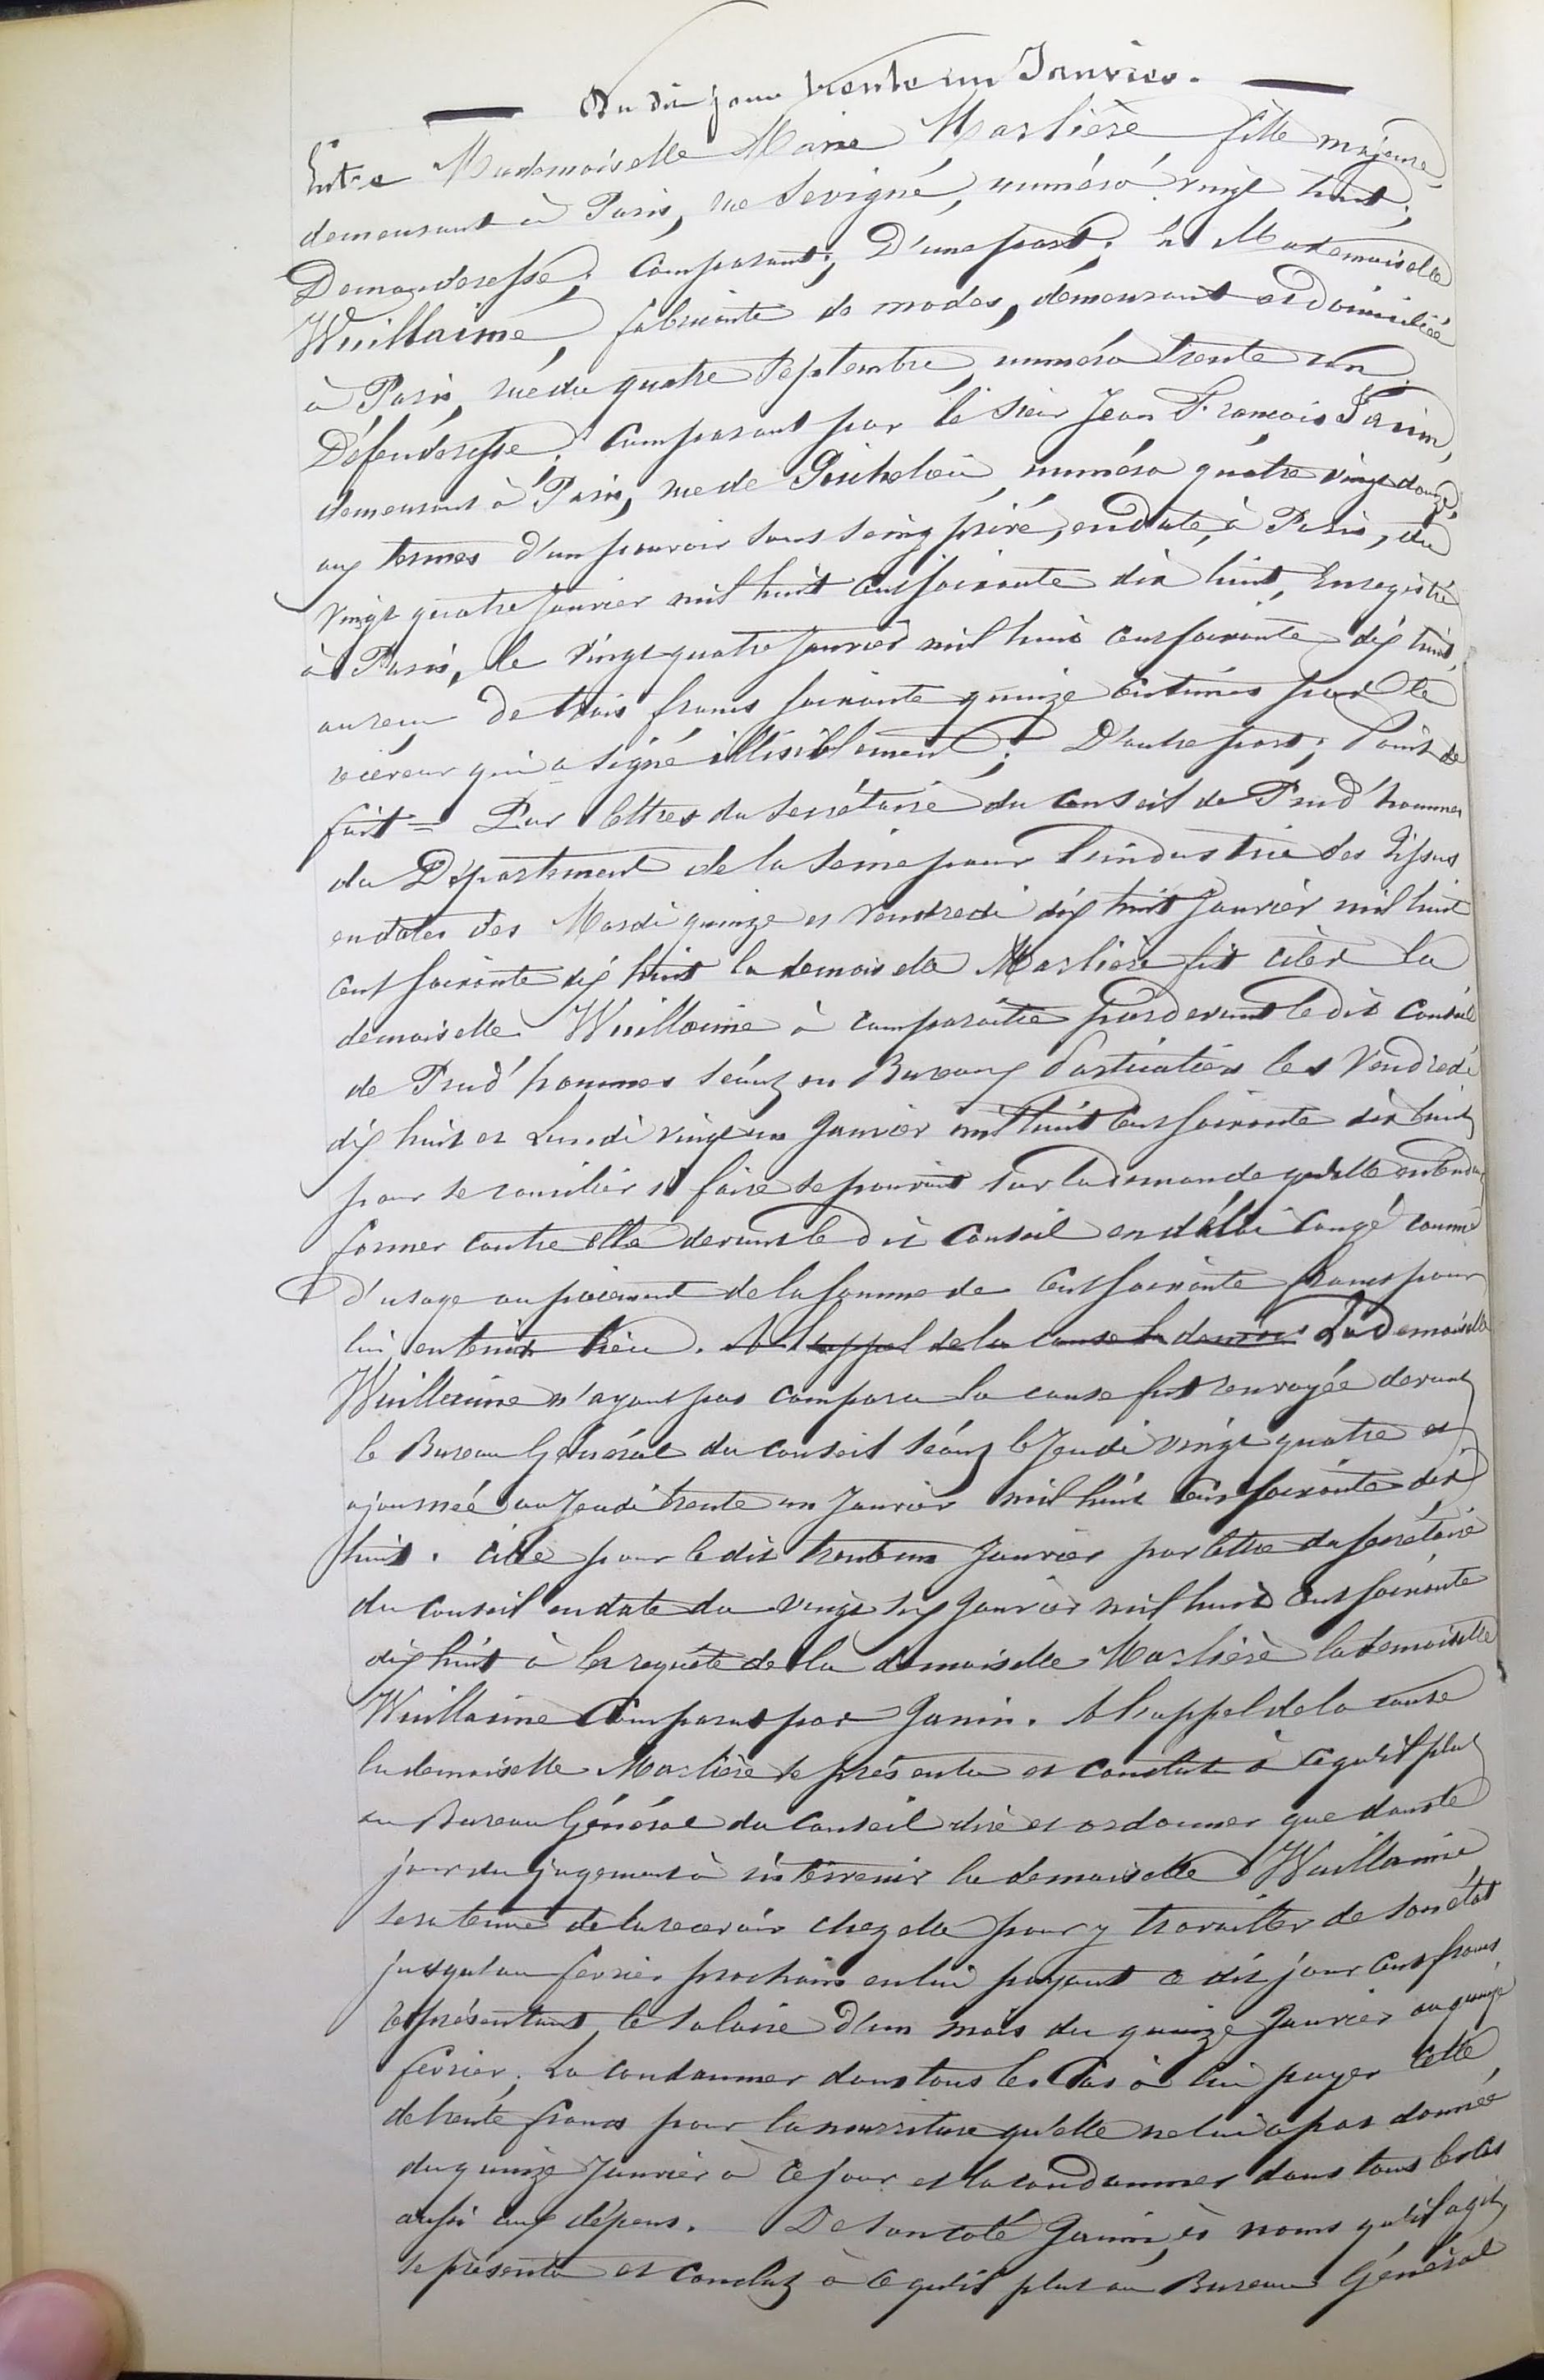 Du dit jour trente un Janvier.
Entre Mademoiselle Marie Marlière fille majeure,
demeurant à Paris, rue Sevigné, numéro vingt huit,
Demanderesse; Comparant; D'une part; Et Mademoiselle
Wuillaime, fabricante de modes, demeurant et domiciliée
à Paris, rue du quatre Septembre, numéro trente un
Défenderesse; Comparant par le Sieur Jean François Janin,
demeurant à Paris, rue de Richelieu numéro quatre vingt douze,
aux termes d'un pouvoir sous seing privé, en date, à Paris, du
vingt quatre Janvier mil huit cent soixante dix huit, Enregistré
à Paris, le vingt quatre Janvier mil huit cent soixante dix huit,
au reçu de trois francs soixante quinze centimes par le
receveur qui a signé illisiblement; D'autre part; Point de
fait = Par lettres du Secrétaire du Conseil de Prud'hommes
du Département de la Seine pour l'industrie des Tissus
en dates des Mardi quinze et Vendredi dix huit Janvier mil huit
cent soixante dix huit la demoiselle Marlière fit citer la
demoiselle Wuillaime à comparaître pardevant le dit Conseil
de Prud'hommes séant en Bureaux Particuliers les Vendredi
dix huit et Lundi vingt un Janvier mil huit cent soixante dix huit
pour se concilier si faire se pouvait sur la demande qu'elle entendait
former contre elle devant le dit Conseil en délai congé comme
d'usage ou paiement de la somme de Cent soixante francs pour
lui en tenir lieu. A l'appel de la cause la demois La Demoiselle
Wuillaime n'ayant pas comparu la cause fut renvoyée devant
le Bureau Général du Conseil séant le Jeudi vingt quatre et
ajournée au Jeudi trente un Janvier mil huit cent soixante dix
huit. Citée pour le dit trente un Janvier par lettre du secrétaire
du Conseil en date du vingt six Janvier mil huit cent soixante
dix huit à la requête de la demoiselle Marlière la demoiselle
Wuillaime Comparut par Janin. A l'appel de la cause
la demoiselle Marlière se présenta et conclut à ce qu'il plut
au Bureau Général du Conseil dire et ordonner que dans le
jour du jugement à intervenir la demoiselle Wuillaime
sera tenue de la recevoir chez elle pour y travailler de son état
jusqu'au février prochain en lui payant ce dit jour Cent francs
représentant le salaire d'un mois du quinze Janvier au quinze
février; La condamner dans tous les Cas à lui payer celle
de trente francs pour la nourriture qu'elle ne lui a pas donnée
du quinze Janvier à ce jour et la condamner dans tous les cas
aussi aux dépens. De son coté Janin ès noms qu'il agit,
se présenta et conclut à ce qu'il plut au Bureau Général